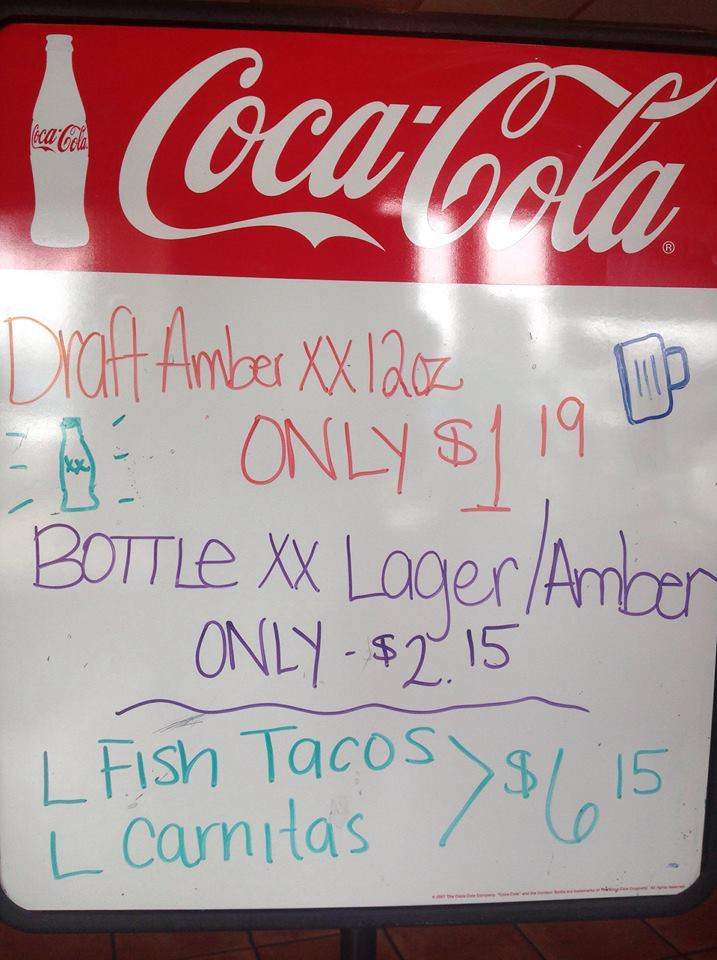 Coca-Cola
Coca-Cola ®
Draft Amber XX 12oz
ONLY $1 19
XX
BOTTLE XX Lager/Amber
ONLY - $2.15
L Fish Tacos > $6 15
L Carnitas